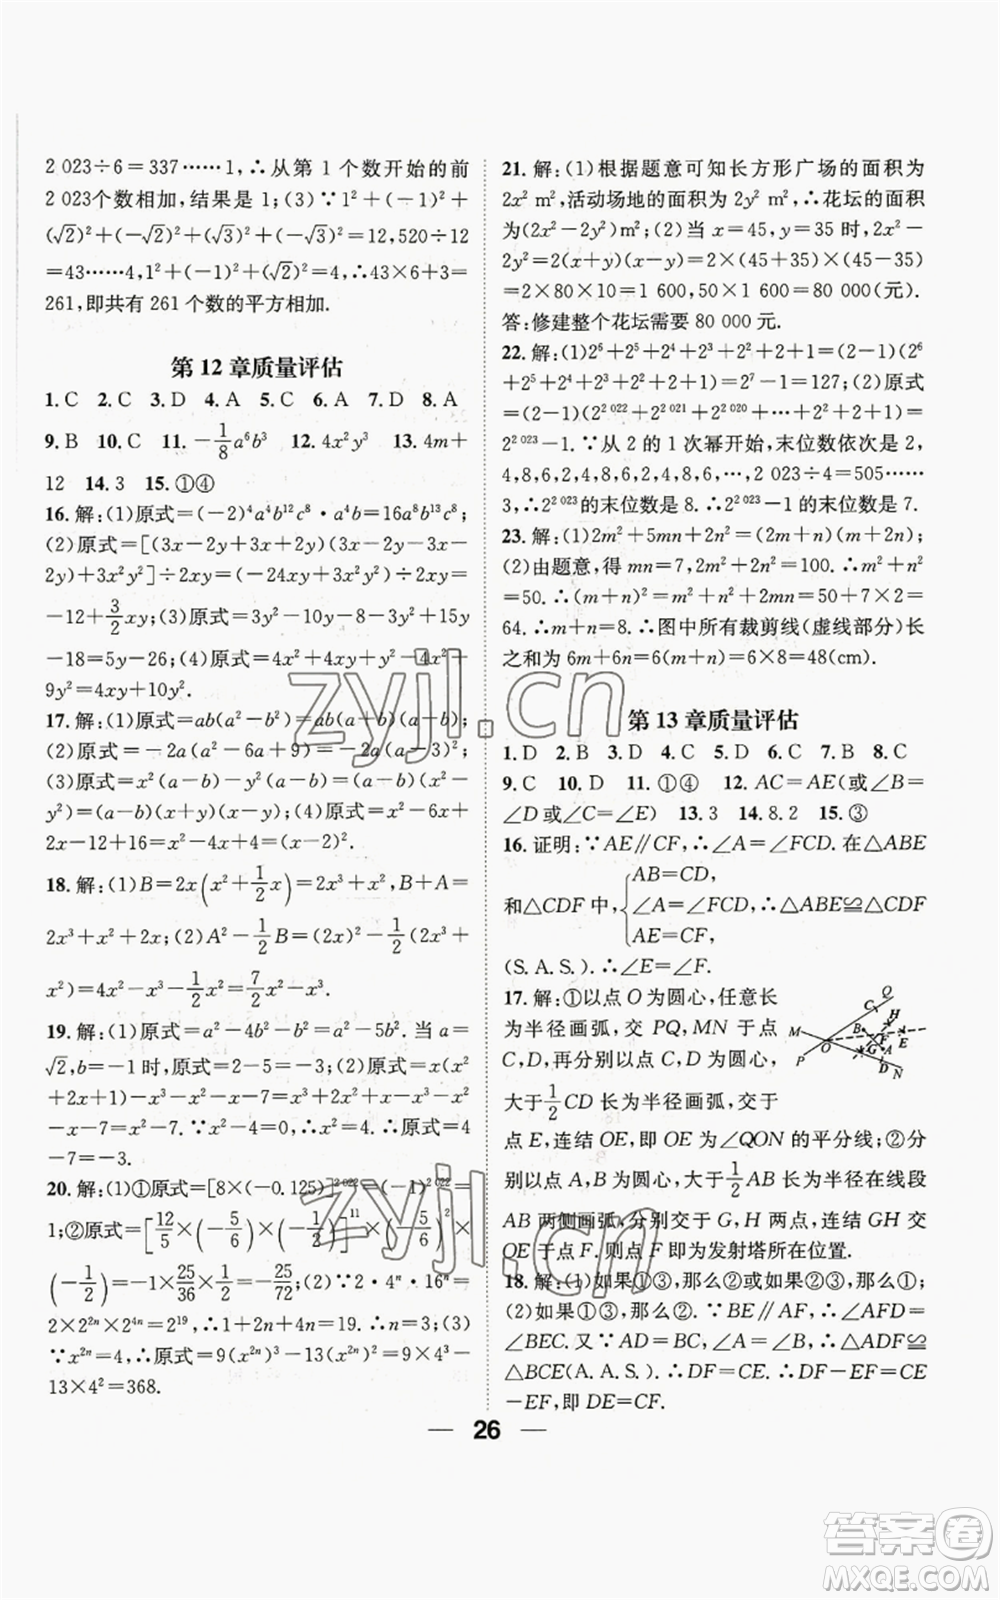 2 023÷6=337……1,∴从第 1 个数开始的前
2 023个数相加,结果是 1;(3)∵1²+(-1)²+
(√2)²+(-√2)²+(√3)²+(-√3)²=12,520÷12
=43……4,1²+(-1)²+(√2)²=4,∴43×6+3=
261,即共有 261 个数的平方相加.
第 12 章质量评估
1. C 2. C 3. D 4. A 5. C 6. A 7. D 8. A
9. B 10. C 11. -1/8a⁶b³ 12. 4x²y³ 13. 4m+
12 14. 3 15. ①④
16. 解:(1)原式=(-2)⁴a⁴b¹²c⁸·a⁴b=16a⁸b¹³c⁸;
(2)原式=[(3x-2y+3x+2y)(3x-2y-3x-
2y)+3x²y²]÷2xy=(-24xy+3x²y²)÷2xy=
-12+3/2xy;(3)原式=3y²-10y-8-3y²+15y
-18=5y-26;(4)原式=4x²+4xy+y²-4x²+
9y²=4xy+10y².
17. 解:(1)原式=ab(a²-b²)=ab(a+b)(a-b);
(2)原式=-2a(a²-6a+9)=-2a(a-3)²;
(3)原式=x²(a-b)-y²(a-b)=(x²-y²)
(a-b)=(a-b)(x+y)(x-y);(4)原式=x²-6x+
2x-12+16=x²-4x+4=(x-2)².
18. 解:(1)B=2x(x²+1/2x)=2x³+x²,B+A=
2x³+x²+2x;(2)A²-1/2B=(2x)²-1/2(2x³+
x²)=4x²-x³-1/2x²=7/2x²-x³.
19. 解:(1)原式=a²-4b²-b²=a²-5b².当 a=
√2,b=-1时,原式=2-5=-3;(2)原式=x(x²
+2x+1)-x³-x²-x-7=x³+2x²+x-x³-x²
-x-7=x²-7.∵x²=4,∴原式=4
-7=-3.
20. 解:(1)①原式=[8×(-0.125)]^2 022=(-1)^2 022=
1;②原式=[12/5×(-5/6)×(-1/2)]^11×(-5/6)²×
(-1/2)²=-1×25/36×1/2=-25/72;(2)∵2·4ⁿ·16ⁿ=
2×2²ⁿ×2⁴ⁿ=2¹⁹,∴1+2n+4n=19.∴n=3;(3)
∵x²ⁿ=4,∴原式=9(x²ⁿ)³-13(x²ⁿ)²=9×4³-
13×4²=368.
21. 解:(1)根据题意可知长方形广场的面积为
2x² m²,活动场地的面积为 2y² m²,∴花坛的面积为
(2x²-2y²)m²;(2)当 x=45,y=35 时,2x²-
2y²=2(x+y)(x-y)=2×(45+35)×(45-35)
=2×80×10=1 600,50×1 600=80 000(元).
答:修建整个花坛需要 80 000 元.
22. 解:(1)2⁶+2⁵+2⁴+2³+2²+2+1=(2-1)(2⁶
+2⁵+2⁴+2³+2²+2+1)=2⁷-1=127;(2)原式
=(2-1)(2^2 022+2^2 021+2^2 020+…+2²+2+1)=
2^2 023-1.∵从 2 的 1 次幂开始,末位数依次是 2,
4,8,6,2,4,8,6,2,4,8,6,…,2 023÷4=505……
3,∴2^2 023的末位数是 8.∴2^2 023-1的末位数是 7.
23. 解:(1)2m²+5mn+2n²=(2m+n)(m+2n);
(2)由题意,得 mn=7,2m²+2n²=100.∴m²+n²
=50.∴(m+n)²=m²+n²+2mn=50+7×2=
64.∴m+n=8.∴图中所有裁剪线(虚线部分)长
之和为 6m+6n=6(m+n)=6×8=48(cm).
第 13 章质量评估
1. D 2. B 3. D 4. C 5. D 6. C 7. B 8. C
9. C 10. D 11. ①④ 12. AC=AE(或∠B=
∠D或∠C=∠E) 13. 3 14. 8.2 15. ③
16. 证明:∵AE∥CF,∴∠A=∠FCD.在△ABE
AB=CD,
和△CDF中,{∠A=∠FCD,∴△ABE≌△CDF
AE=CF,
(S.A.S.).∴∠E=∠F.
17. 解:①以点 O 为圆心,任意长
为半径画弧,交 PQ,MN于点
C,D,再分别以点C,D为圆心,
大于1/2CD长为半径画弧,交于
点 E,连结 OE,即 OE 为∠QON的平分线;②分
别以点 A,B为圆心,大于1/2AB 长为半径在线段
AB 两侧画弧,分别交于 G,H 两点,连结 GH交
OE于点 F.则点 F即为发射塔所在位置.
18. 解:(1)如果①③,那么②;如果②③,那么①;
(2)如果①③,那么②.∵BE∥AF,∴∠AFD=
∠BEC.又∵AD=BC,∠A=∠B,∴△ADF≌
△BCE(A.A.S.).∴DF=CE.∴DF-EF=CE
-EF,即 DE=CF.
Q
C
H
M
B
F
E
O
G
A
P
D
N
26
zyjl.cn
zyjl.cn
答案圈
MXQE.COM